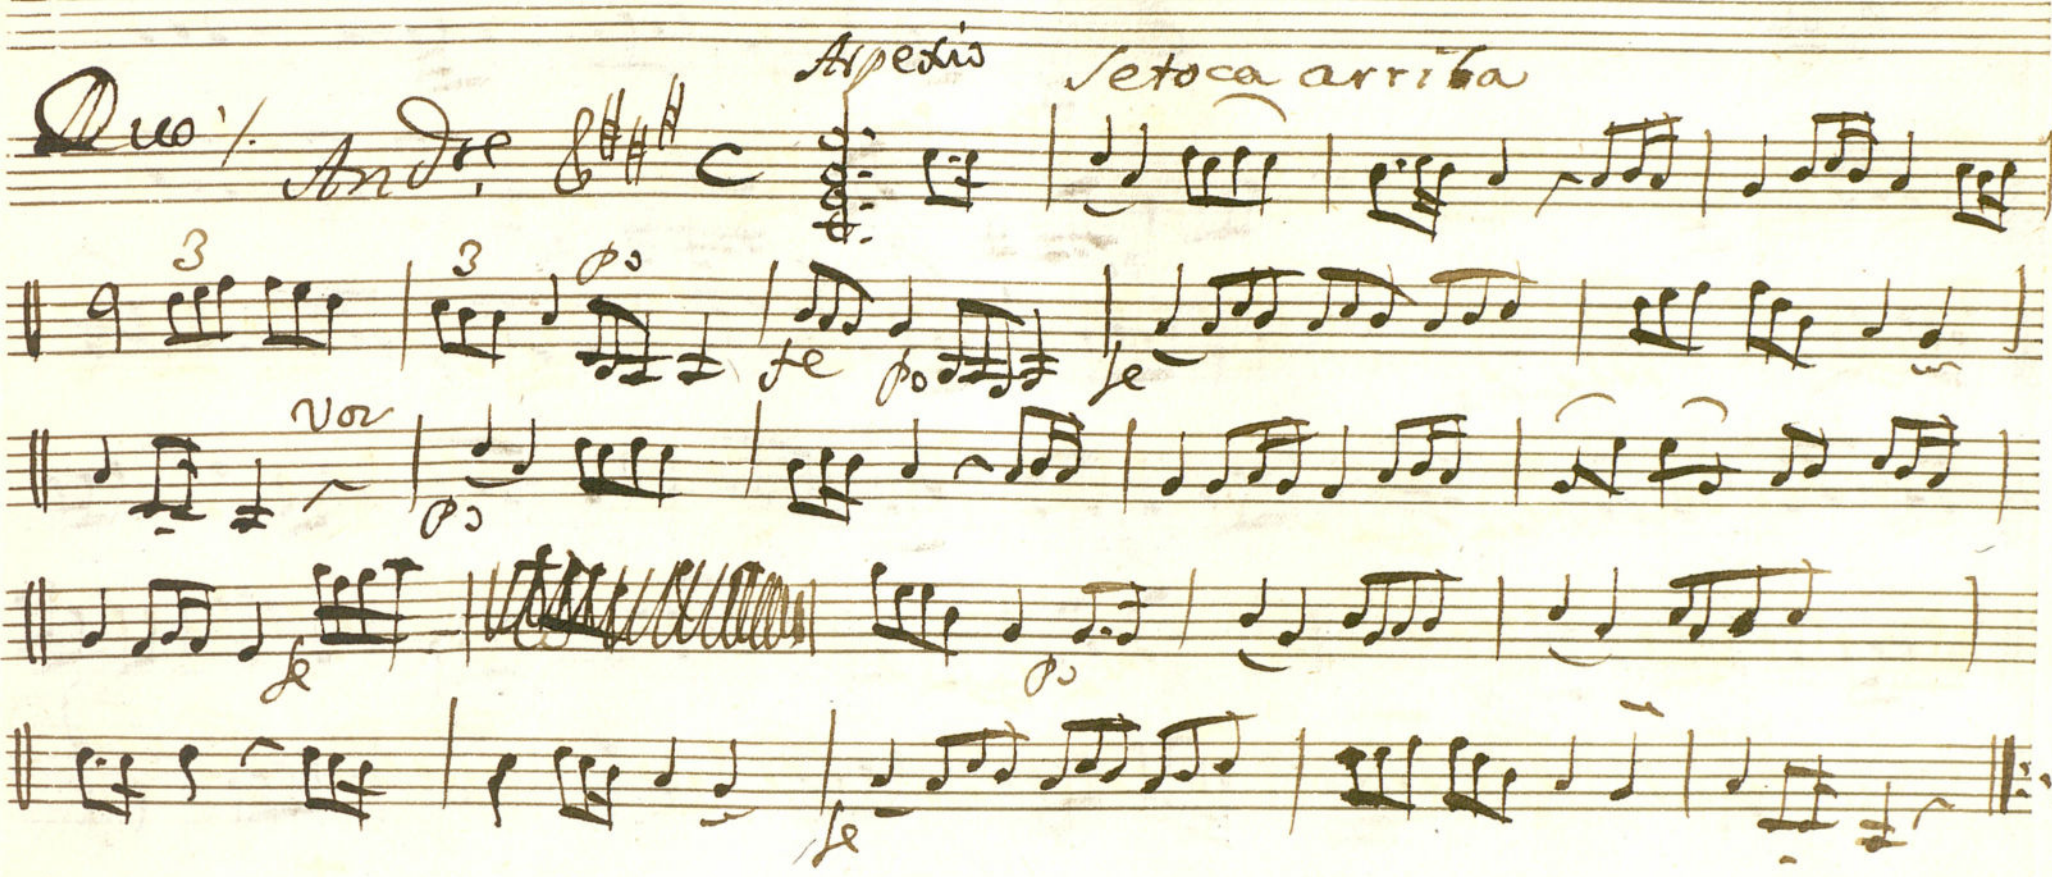 Arpexio Se toca arriba
Duo ·/. And.e C
3 3 po
fe po fe
voz
po
fe po
fe